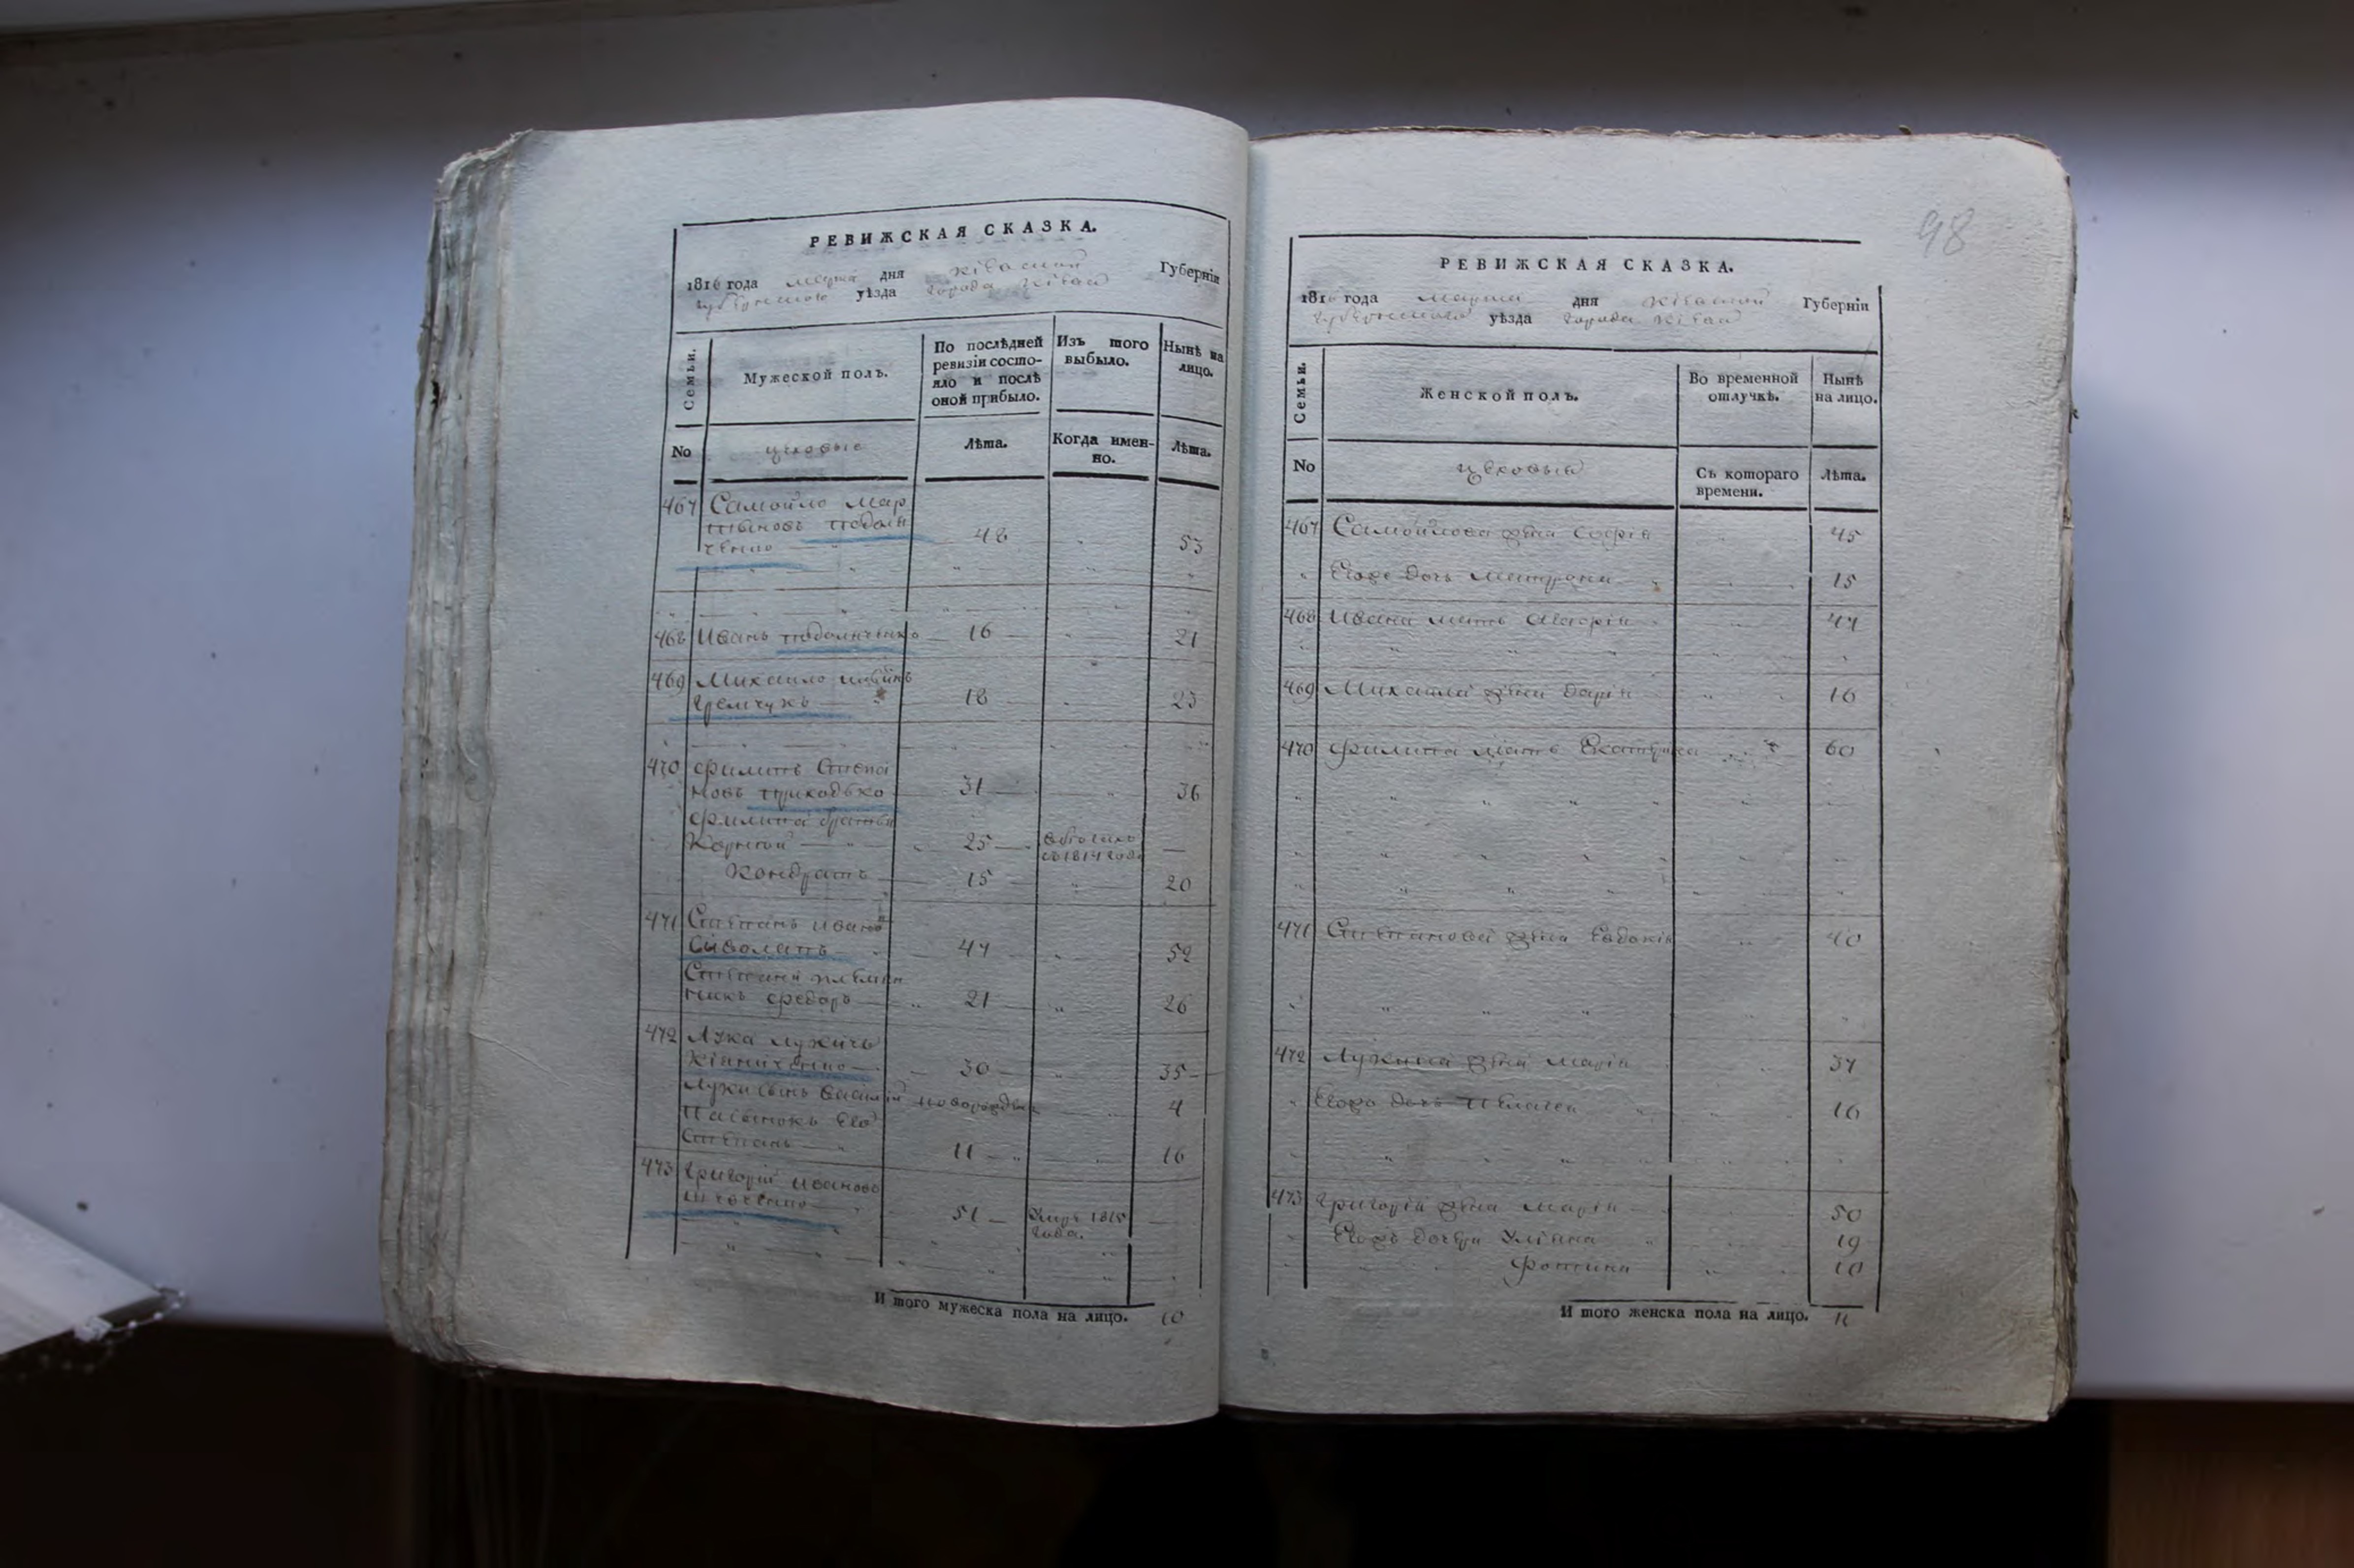 РЕВИЖСКАЯ СКАЗКА.
1816 года марта дня Кіевской Губерніи
губернского уѣзда города Кіева
Семьи.
Мужеской полъ.
По послѣдней ревизіи состояло и послѣ оной прибыло.
Изъ того выбыло.
Нынѣ на лицо.
No
цеховые
Лѣта.
Когда именно.
Лѣта.
467 Самойло Мар
тыновъ Подолн
ченко 48 53
468 Иванъ Подолнченко 16 21
469 Михайло
Гремчукъ 18 23
470 Филипъ Степа
новъ Приходько 31 36
Филипа братья
Корнѣй 25 с 1814 года —
Кондратъ 15 20
471 Степанъ Ивановъ
Сываланъ 47 52
Степана племян
никъ Федоръ 21 26
472 Лука Лукичъ
Кіяниченко 30 35
Луки сынъ Василій новорожденъ 4
Пасынокъ Его
Степанъ 11 16
473 Григорій Ивановъ
51 Умре 1815
года. —
И того мужеска пола на лицо. 10
98
РЕВИЖСКАЯ СКАЗКА.
1816 года марта дня Кіевской Губерніи
губернского уѣзда города Кіева
Семьи.
Женской полъ.
Во временной отлучкѣ.
Нынѣ на лицо.
No
цеховыя
Съ котораго времени.
Лѣта.
467 Самойлова жена Софія 45
Егоже дочь Матрона 15
468 Ивана мать 47
469 Михайла жена Дарія 16
470 Филипа мать Екатерина 60
471 Степанова жена Евдокія 40
472 Лукина жена Марія 37
Егожъ дочь Пелагея 16
473 Григорія жена Марія 50
Егожъ дочери Уліяна 19
Фотина 10
И того женска пола на лицо. 11